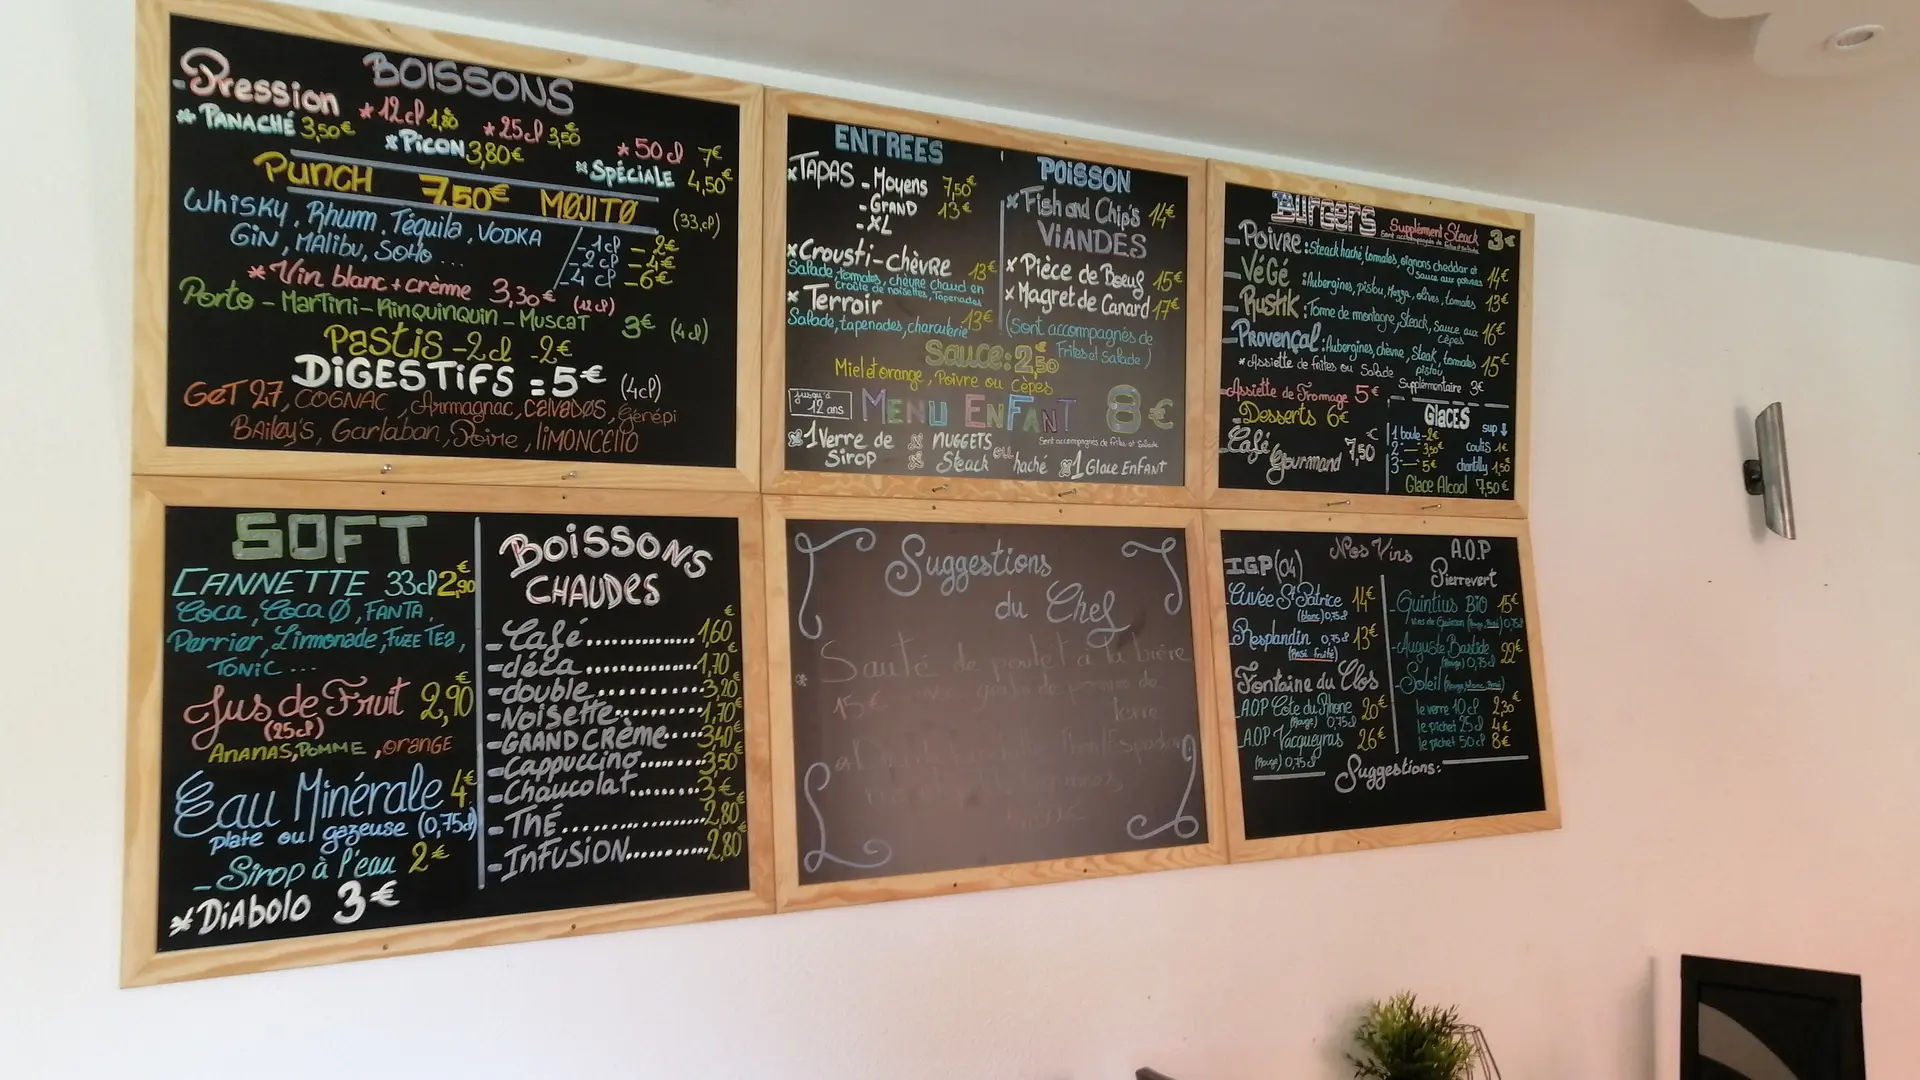 BOISSONS
-Pression * 12cl 1,80 * 25cl 3,50 * 50cl 7€
* PANACHÉ 3,50€ * PICON 3,80€ * SPÉCIALE 4,50€
PUNCH 7,50€ MOJITO (33cl)
WHISKY, Rhum, Téquila, VODKA
GIN, MALIBU, SOHO ...
-1cl -2€
-2cl -4€
-4cl -6€
* Vin blanc + crème 3,30€ (12cl)
Porto - MARTINI - RINQUINQUIN - MUSCAT 3€ (4cl)
PASTIS -2cl -2€
DIGESTIFS = 5€ (4cl)
GET 27, COGNAC, Armagnac, CALVADOS, Génépi
BAILEY'S, Garlaban, Poire, LIMONCELLO
ENTREES
* TAPAS - Moyens 7,50€
- GRAND 13€
- XL
* Crousti-Chèvre 13€
Salade, tomates, chèvre chaud en
croûte de noisettes, Tapenades
* Terroir 13€
Salade, tapenades, charcuterie
POISSON
* Fish and Chip's 14€
VIANDES
* Pièce de Boeuf 15€
* Magret de Canard 17€
(Sont accompagnés de
Frites et Salade)
Sauce: 2,50€
Miel et orange, Poivre ou Cèpes
jusqu'à
12 ans
MENU ENFANT 8€
Sont accompagnés de frites et salade
1 Verre de
Sirop
NUGGETS
ou
Steack haché
1 Glace ENFANT
BURGERS Supplément Steack 3€
Sont accompagnés de frites et salade
-POIVRE: Steack haché, tomates, oignons cheddar et
sauce aux poivres 14€
-VÉGÉ: Aubergines, pistou, Mozza, olives, tomates 13€
-RUSTIK: Tomme de montagne, Steack, Sauce aux
cèpes 16€
-PROVENÇAL: Aubergines, chèvre, Steak, tomates
pistou 15€
* ASSiette de frites ou Salade Supplémentaire 3€
-Assiette de Fromage 5€
-Desserts 6€
-Café Gourmand 7,50€
GLACES
1 boule -2€
2 - 3,50€
3 - 5€
sup ↓
coulis 1€
chantilly 1,50
Glace Alcool 7,50€
SOFT
CANNETTE 33cl 2,90€
Coca, Coca Ø, FANTA,
Perrier, Limonade, FUZE TEA,
TONIC ...
Jus de Fruit 2,90€
(25cl)
ANANAS, POMME, orange
Eau Minérale 4€
plate ou gazeuse (0,75cl)
- Sirop à l'eau 2€
* DIABOLO 3€
BOISSONS
CHAUDES
-Café..............1,60€
-déca.............1,70€
-double...........3,20€
-NOISETTE........1,70€
-GRAND CRÈME.....3,40€
-Cappuccino.......3,50€
-Chaucolat........3€
-THÉ..............2,80€
-INFUSION.........2,80€
Suggestions
du Chef
Sauté de poulet à la bière
15€
terre
Nos Vins
IGP(04)
-Cuvée St Patrice 14€
(blanc) 0,75cl
-Resplandin 0,75cl 13€
(Rosé fruité)
Fontaine du Clos
-A.O.P Cote du Rhone 20€
(Rouge) 0,75cl
-A.O.P Vacqueyras 26€
(Rouge) 0,75cl
A.O.P
Pierrevert
-Quintius BIO 15€
-Auguste Bastide 22€
(Rouge) 0,75cl
-Soleil (Rouge, blanc, Rosé)
le verre 10cl 2,30€
le pichet 25cl 4€
le pichet 50cl 8€
Suggestions: